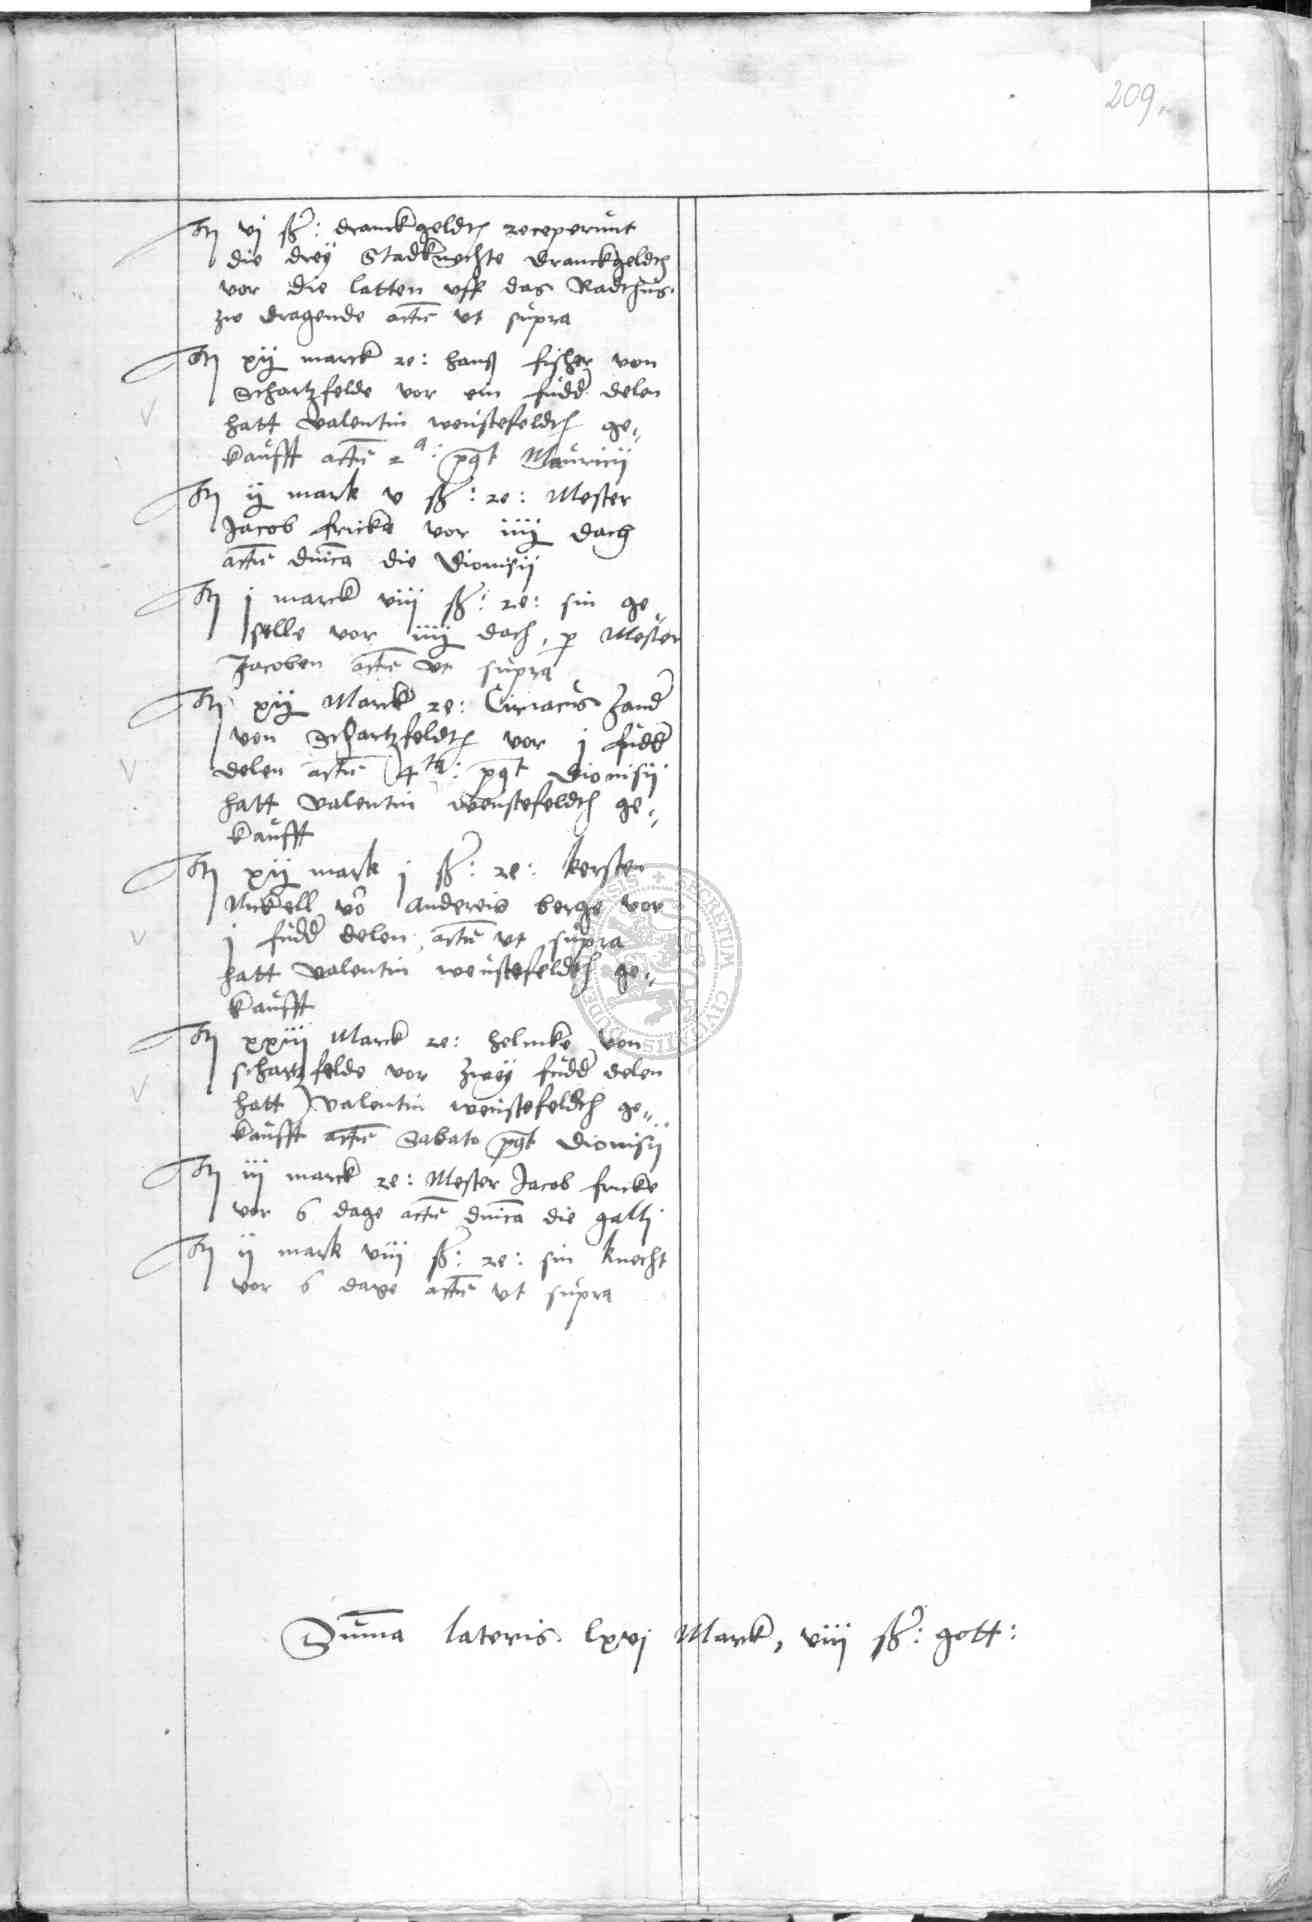 209.
It vj ß: dranckgeldt receperunt
die drey Stadknechte dranckgeldt
vor die latten vff das Radthus
zw dragende actu vt supra
It xij marck re: hanß fisher von
Schartzfelde vor ein fudd delen
hatt valentin wenstefeldt ge-
kaufft actu 2a: post Mauricij
It ij mark v ß: re: Mester
Jacob fricke vor iiij dach
actu dnica die Dionisij
It j marck viij ß: re: sin ge-
selle vor iiij dach, p Mester
Jacoben actu vt supra
It xij Marck re: Ciriacus Zand
von Schartzfeldt vor j fudd
delen actu 4ta: post Dionisij
hatt valentin wenstefeldt ge-
kaufft
It xij mark j ß: re: kersten
Nickell vo Andereis berge vor
j fudd delen actu vt supra
hatt valentin wenstefeldt ge-
kaufft
It xxiij Marck re: helmke von
schartzfelde vor zwey fudd delen
hatt valentin wenstefeldt ge-
kaufft actu Sabato post Dionisij
It iij marck re: Mester Jacob fricke
vor 6 dage actu dnica die galli
It ij mark viij ß: re: sin knecht
vor 6 dage actu vt supra
Suma lateris lxvj Mark, viij ß: gott:
SECRETUM CIVITATIS